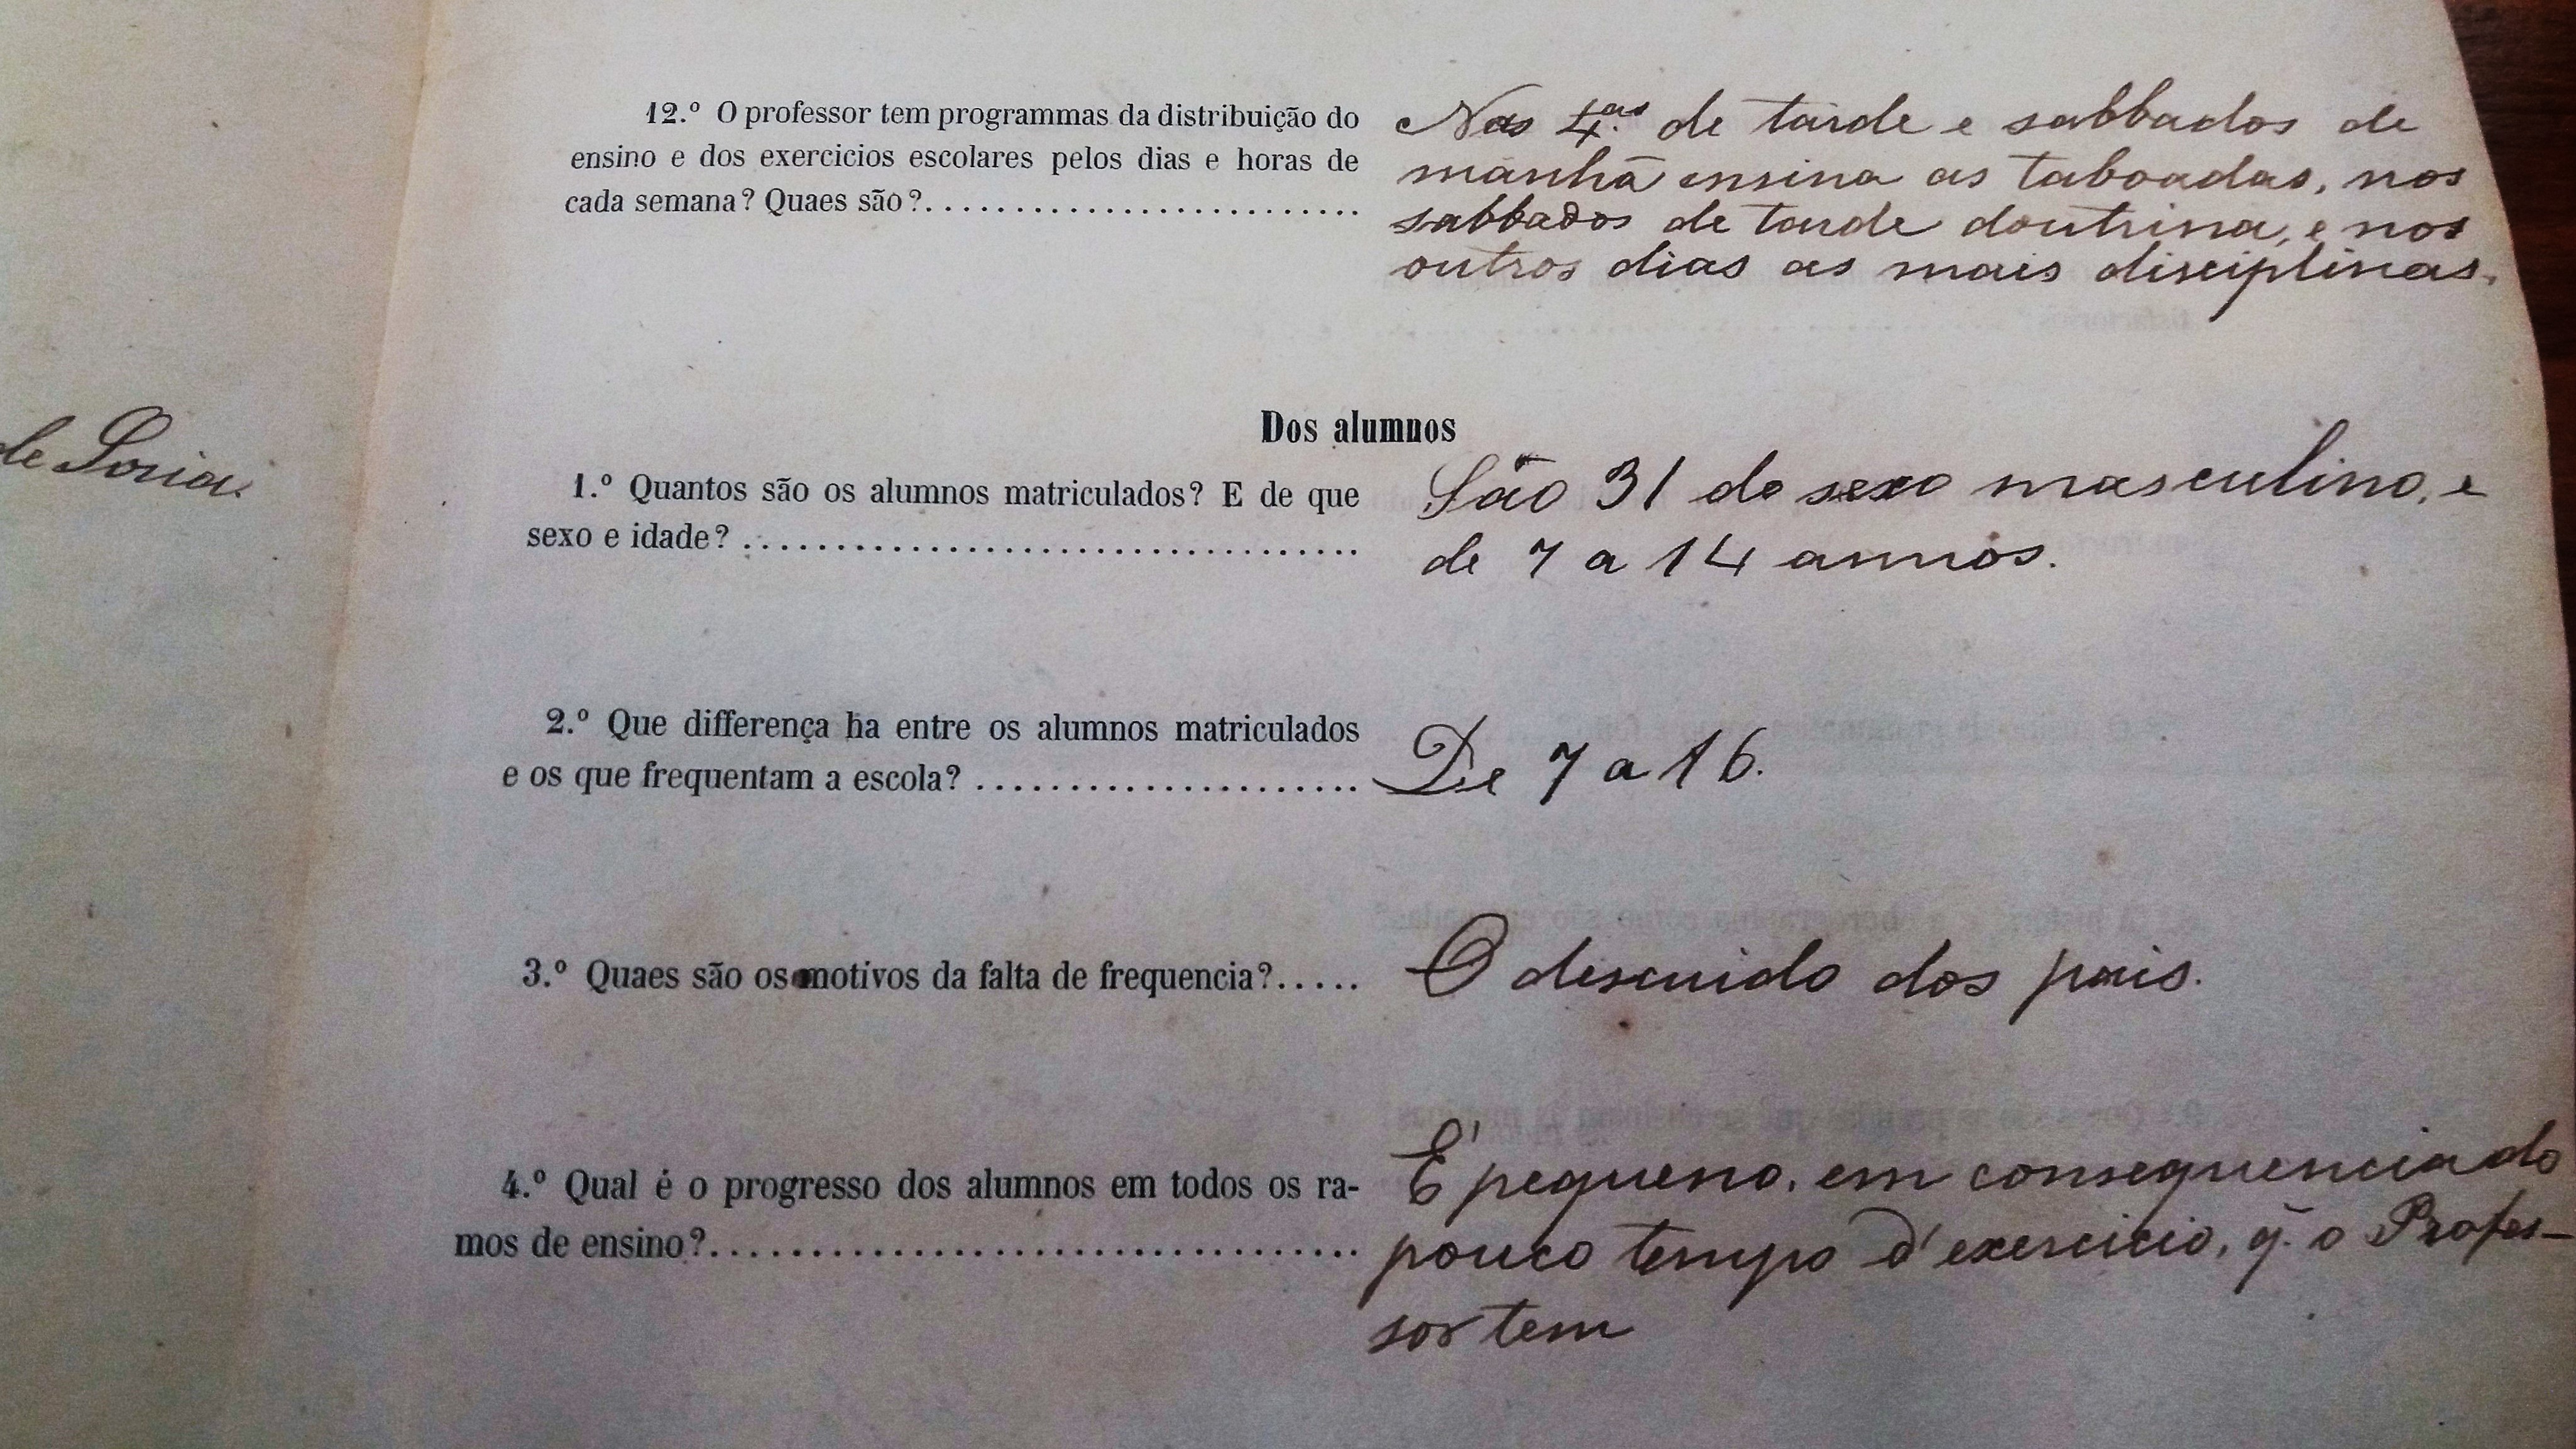 12.º O professor tem programmas da distribuição do
ensino e dos exercicios escolares pelos dias e horas de
cada semana? Quaes são?..........................
Nas 4.as de tarde e sabbados de
manhã ensina as taboadas, nos
sabbados de tarde doutrina, e nos
outros dias as mais disciplinas.
de
Dos alumnos
1.º Quantos são os alumnos matriculados? E de que
sexo e idade? ..................................
São 31 do sexo masculino, e
de 7 a 14 annos.
2.º Que differença ha entre os alumnos matriculados
e os que frequentam a escola? .....................
De 7 a 16.
3.º Quaes são os motivos da falta de frequencia?.....
O descuido dos pais.
4.º Qual é o progresso dos alumnos em todos os ra-
mos de ensino?..................................
É pequeno, em consequencia do
pouco tempo d'exercicio, q. o Profes-
sor tem